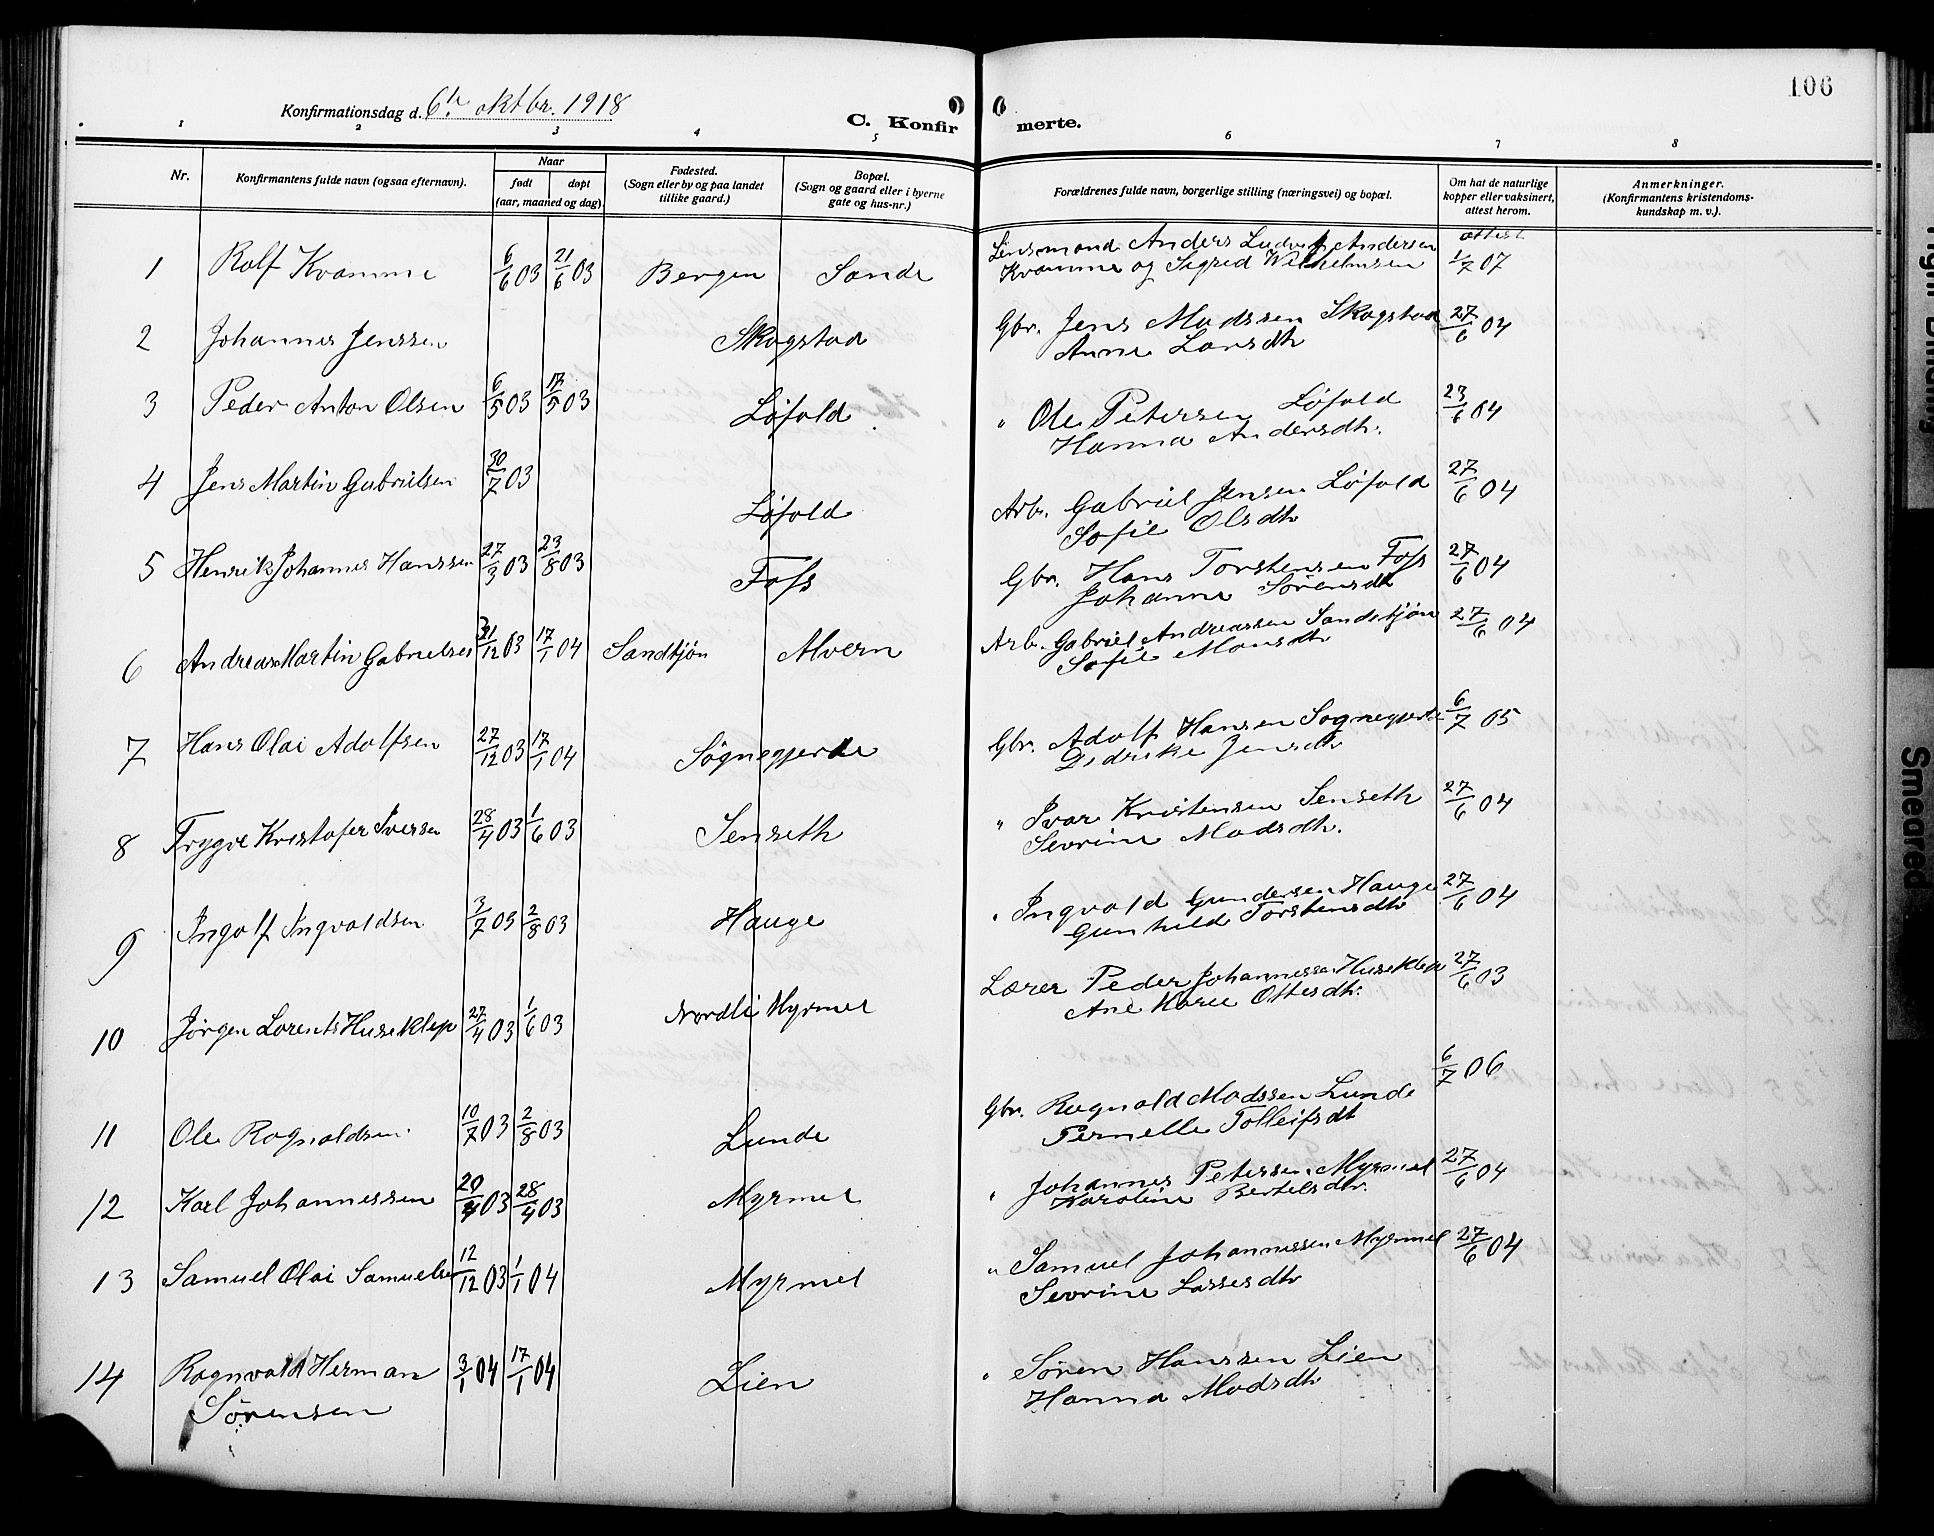 106
Konfirmationsdag d. 6te oktbr. 1918
C. Konfirmerte.
1 2 3 4 5 6 7 8
Nr. Konfirmantens fulde navn (ogsaa efternavn). Naar født døpt (aar, maaned og dag). Fødested. (Sogn eller by og paa landet tillike gaard.) Bopæl. (Sogn og gaard eller i byerne gate og hus-nr.) Forældrenes fulde navn, borgerlige stilling (næringsvei) og bopæl. Om hat de naturlige kopper eller vaksinert, attest herom. Anmerkninger. (Konfirmantens kristendoms-kundskap m. v.).
1 Rolf Kvamme 6/6 03 21/6 03 Bergen Sande Lensmand Anders Ludvig Andersen attest
Kvamme og Sigrid Wilhelmsen 1/7 07
2 Johannes Jenssen Skogstad Gbr. Jens Madssen Skogstad 27/6 04
Anne Larsdtr
3 Peder Anton Olsen 6/5 03 17/5 03 Løfald " Ole Petersen Løfald 23/6 04
Hanna Andersdtr.
4 Jens Martin Gabrielsen 30/7 03 Løfald Arb. Gabriel Jensen Løfald 27/6 04
Sofie Olsdtr
5 Henrik Johannes Hanssen 27/3 03 23/8 03 Foss Gbr. Hans Torstensen Foss 27/6 04
Johanne Sørensdtr
6 Andreas Martin Gabrielsen 31/12 03 17/1 04 Sandtjøn Alvern Arb. Gabriel Andreassen Sandstjøn 27/6 04
Sofie Monsdtr
7 Hans Olai Adolfsen 27/12 03 17/1 04 Søgnegjerde Gbr. Adolf Hansen Sognegjerde 6/7 05
Didrike Jensdtr
8 Trygve Kristofer Iversen 28/4 03 1/6 03 Senseth " Ivar Kristensen Senseth 27/6 04
Sevrine Madsdtr.
9 Ingolf Ingvaldsen 3/7 03 2/8 03 Hauge " Ingvald Gundersen Hauge 27/6 04
Gunhild Torstensdtr
10 Jørgen Lorents Huseklep 27/4 03 1/6 03 Nordli Myrmel Lærer Peder Johannessen Huseklep 27/6 03
Ane Marie Ottesdtr.
11 Ole Ragnaldsen 10/7 03 2/8 03 Lunde Gbr. Ragnald Madssen Lunde 6/7 06
Pernelle Tolleifsdtr
12 Karl Johannessen 20/4 03 28/4 03 Myrmel " Johannes Petersen Myrmel 27/6 04
Karoline Bertelsdtr.
13 Samuel Olai Samuelsen 12/12 03 1/1 04 Myrmel " Samuel Johannessen Myrmel 27/6 04
Sevrine Lassesdtr
14 Ragnvald Herman 3/1 04 17/1 04 Lien " Søren Hanssen Lien
Sørensen Hanna Madsdtr
Tight Binding
Smeared